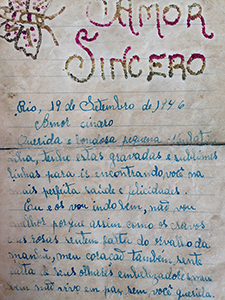 AMOR
SINCERO
Rio, 19 de Setembro de 1946
Amor sinaro
Querida e bondosa pequena
tinha, tenho estas gravadas e sublimes
linhas para is encontrando, você na
mais perfeita saúde e felicidades.
Eu e os vou indo sem, não, vou
melhor porque assim como os cravos
e as rosas sentem falta do orvalho da
manhã, meu coração também sente
falta de seus olhares
eu não vivo em paz, sem você querida.